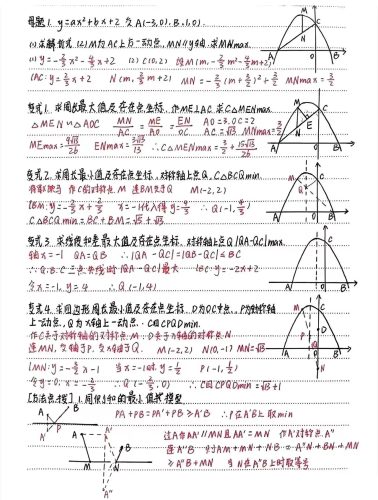 母题1. y=ax²+bx+2 交A(-3,0), B(1,0).
(1) 求解析式 (2) M为AC上方一动点, MN∥y轴 求MNmax.
(1) y=-⅔x²-4/3x+2 (2) C(0,2) 设M(m,-⅔m²-4/3m+2)
lAC: y=⅔x+2 N(m,⅔m+2) MN=-⅔(m+3/2)²+3/2 MNmax=3/2
变式1. 求周长最大值及存在点坐标. 作ME⊥AC 求C△MENmax.
△MEN∽△AOC MN/AC=ME/AO=EN/OC AO=3, OC=2 AC=√13 MNmax=3/2
MEmax=9√13/26 ENmax=3√13/13 ∴C△MENmax=3/2+15√13/26
变式2. 求周长最小值及存在点坐标. 对称轴上点Q, C△BCQmin.
M(-2,2)
lBM: y=-⅔x+⅔ x=-1代入得y=4/3 ∴Q(-1,4/3)
C△BCQmin=BC+BM=√5+√13.
变式3. 求线段和差最大值及存在点坐标. 对称轴上点Q |QA-QC|max.
轴x=-1 QA=QB ∴|QA-QC|=|QB-QC|≤BC
∴Q.B.C三点共线时|QA-QC|最大 lBC: y=-2x+2
令x=-1, y=4 ∴Q(-1,4)
变式4. 求四边形周长最小值及存在点坐标. D为OC中点, P为对称轴
上一动点, Q为x轴上一动点. C四CPQDmin.
作C关于对称轴的对称点M, D关于x轴的对称点N
连MN, 交轴于P, 交x轴于Q. M(-2,2) N(0,-1) MN=√13
lMN: y=-3/2x-1 当x=-1时, y=½ P(-1,½)
令y=0, x=-⅔ ∴Q(-⅔,0) ∴C四CPQDmin=√13+1
[方法点拨] 1. 周长/和的最小值模型
PA+PB=PA'+PB≥A'B ∴P在A'B上取min
过A作AA'∥MN且AA'=MN 作A'对称点A''
连A''B 则AM+MN+NB=A''N+BN+MN
≥A''B+MN 当N在A''B上时取等号